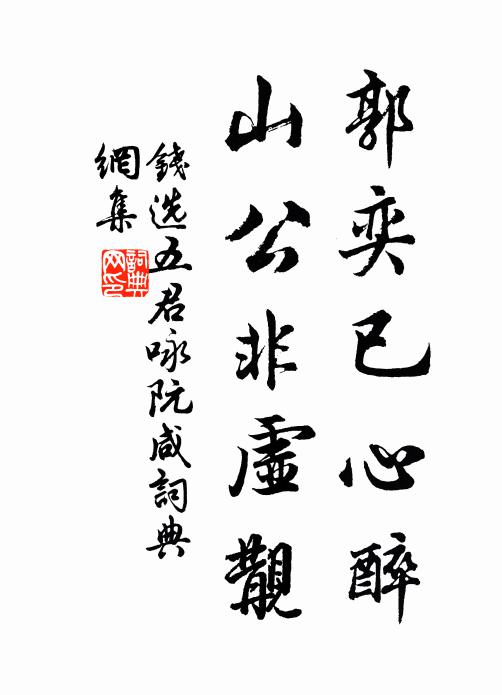 郭奕已心醉
山公非虛覯
錢选五君咏阮咸詞典
網集
詞典
网印